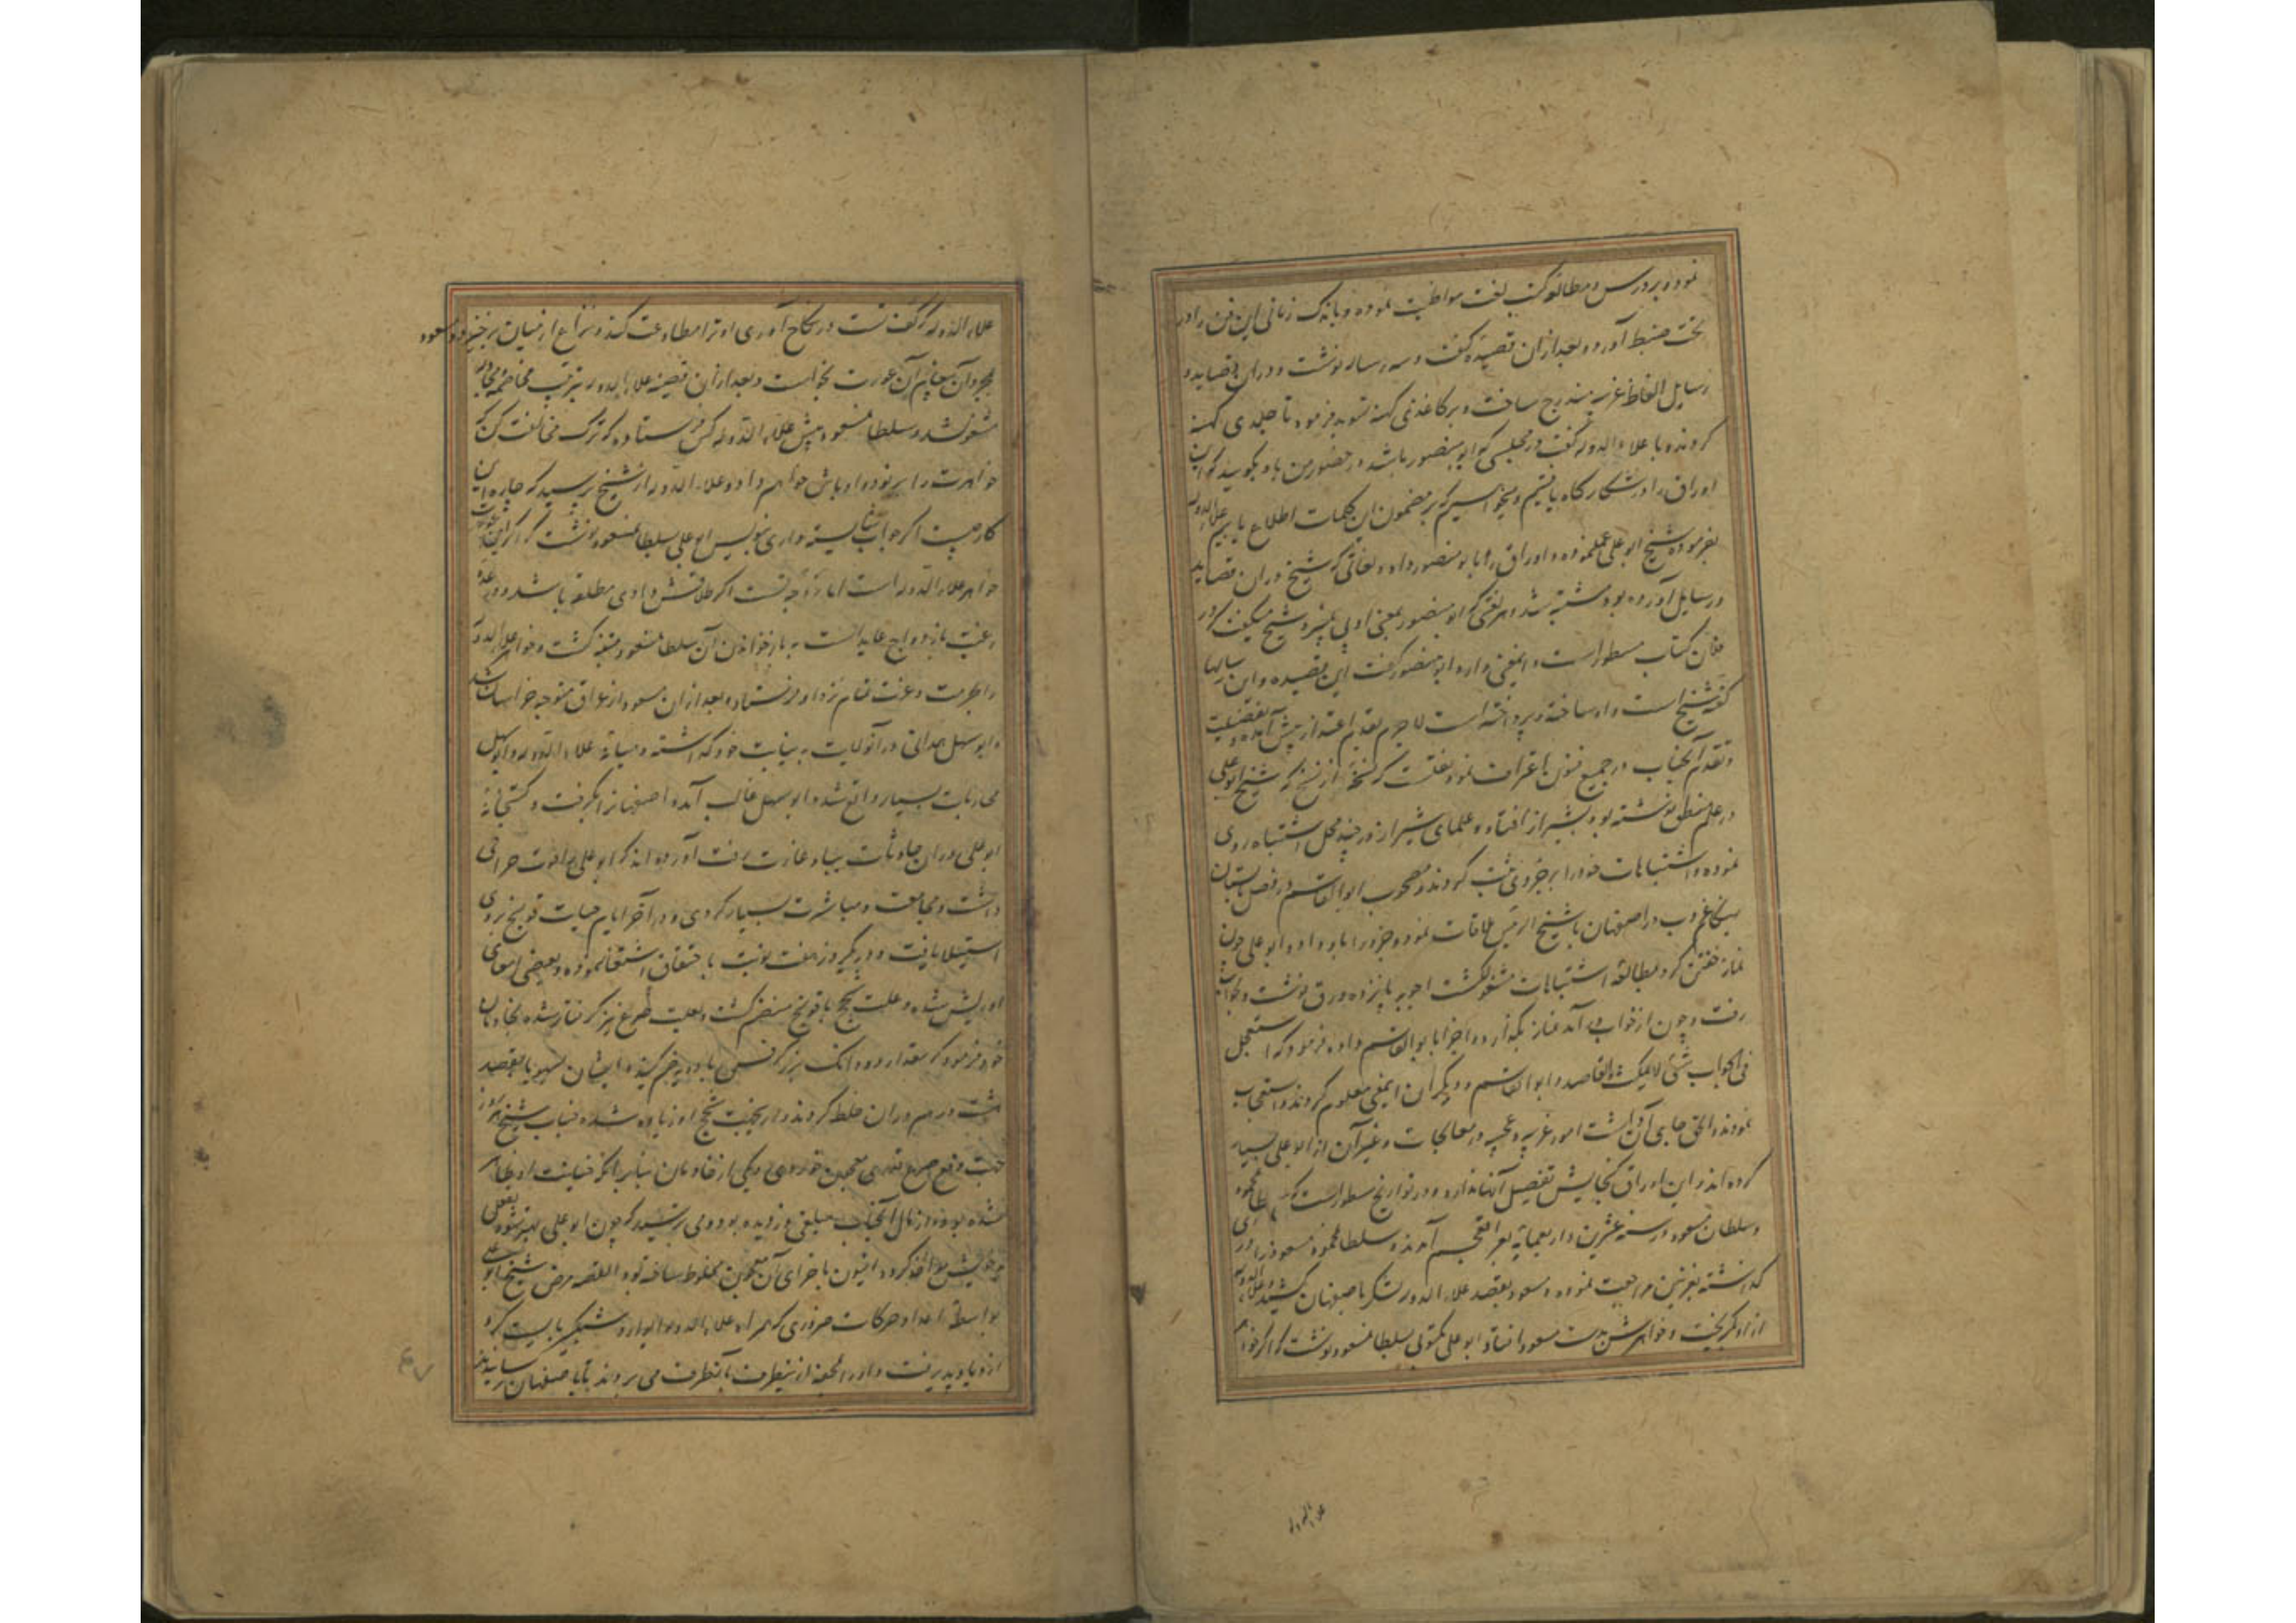 نموده بدرس و مطالعه کتب لغت مواظبت نموده و باندک زمانی این فن را در
تحت ضبط آورد و بعد ازان قصیده گفت و سه رساله نوشت و دران قصاید و
رسایل الفاظ غریبه مندرج ساخت و بر کاغذی کهنه فرمود تا جلدی کهنه
کردند و با علاء الدوله گفت در مجلسی که ابو منصور باشد در حضور من باو بگویید که این
اوراق را در شکارگاه یافتیم و میخواهیم که بر مضمون این کلمات اطلاع یابیم علاء الدوله
بفرموده شیخ ابو علی عمل نموده و اوراق را بابو منصور داد و لغاتی که شیخ دران قصاید
و رسایل آورده بود مشتبه شد و هر لغتی که ابو منصور بمعنی او پی نمیبرد شیخ میگفت که در
فلان کتاب مسطور است و این معنی دارد ابو منصور گفت این قصیده و این رسالها
گفته شیخ است و او ساخته و پرداخته است لاجرم بقدم اعتذار پیش آمده و بفضیلت
و تقدم آنجناب در جمیع فنون اعتراف نمود نقلست که نسخه از نسخ که شیخ ابو علی
در علم منطق نوشته بود بشیراز افتاد و علمای شیراز در چند محل اشتباه روی
نموده و اشتباهات خود را بر جزوی ثبت کردند و مصحوب ابو القاسم در فصل تابستان
هنگام غروب در اصفهان با شیخ الرئیس ملاقات نمود و جزو را باو داد و ابو علی چون
نماز خفتن کرد بمطالعه اشتباهات مشغول گشت اجوبه پانزده ورق نوشت و بخواب
رفت و چون از خواب در آمد نماز بگذارد و اجزا بابو القاسم داد و فرمود که استعجل
فی الجواب شئ لا یمکث القاصد و ابو القاسم و دیگران این معنی معلوم کردند و استعجاب
نمودند و الحق جای آن داشت امور غریبه و عجیبه در معالجات و غیر آن از ابو علی بسیار
کرده اند و این اوراق گنجایش تفصیل آنها ندارد و در تواریخ مسطور است که سلطان محمود
و سلطان مسعود در سنه عشرین و اربعمایه بعراق عجم آمدند و سلطان محمود مسعود را در ری
گذاشته بغزنین مراجعت نموده و مسعود بقصد علاء الدوله لشکر باصفهان کشید و علاء الدوله
ازو بگریخت و خواهرش بدست مسعود افتاد و ابو علی مکتوبی بسلطان مسعود نوشت که اگر خواهر
علاء الدوله
علاء الدوله که کفو تست در نکاح آوری او ترا مطاوعت کند و نزاع از میان برخیزد و مسعود
آن عورت بخواست و بعد ازان قضیه علاء الدوله بترتیب مخاصمه
مشغول شد و سلطان مسعود پیش علاء الدوله کس فرستاده که ترک مخالفت کن که
خواهرت را به اوباش خواهم داد و علاء الدوله از شیخ پرسید که چاره این
کار چیست اگر جواب شایسته داری بنویس ابو علی بسلطان مسعود نوشت که اگر این عورت
خواهر علاء الدوله است اما زوجه تست اگر طلاقش دادی مطلقه باشد و
رغبت بازدواج عاید است به باز خواندن آن سلطان مسعود متنبه گشت و خواهر علاء الدوله
را بحرمت و عزت تمام نزد او فرستاد و بعد ازان مسعود از عراق متوجه خراسان شد
و ابو سهل همدانی در آنولایت به نیابت خود گذاشته و میانه علاء الدوله و ابو سهل
محاربات بسیار واقع شد و ابو سهل غالب آمده اصفهانرا بگرفت و کتبخانه
ابو علی دران حادثات بباد غارت رفت آورده اند که ابو علی قوت
داشت و مجامعت و مباشرت بسیار کردی و در آخر ایام حیات قولنج بروی
استیلا یافت و در یک روز هفت نوبت باحتقان اشتغال نموده و بعضی امعای
او ریش شده و علت سحج با قولنج منضم گشت و بعلت صرع نیز گرفتار شده بخادمان
خود فرمود که مقدار دو دانک بزر کرفس با ادویه ضم کنید ایشان بسهو یا بقصد
هشت درم دران خلط کردند و ازین جهت سحج او زیاده شده جناب شیخ هر روز
جهت دفع صرع قدری معجون خوردی و یکی از خادمان بنابر آنکه خیانت او ظاهر
شده بود و از مال آنجناب مبلغی دزدیده بود و می ترسید که چون ابو علی بهتر شود
مواخذه کرده افیون باجزای آن معجون مخلوط ساخته بود القصه مرض شیخ ابو علی
بواسطه اعدا و حرکات ضروری که همراه علاء الدوله شبگیر بایست کرد
ازدیاد پذیرفت و او را بمحفه از ینطرف بآنطرف می بردند تا باصفهان رسانیدند